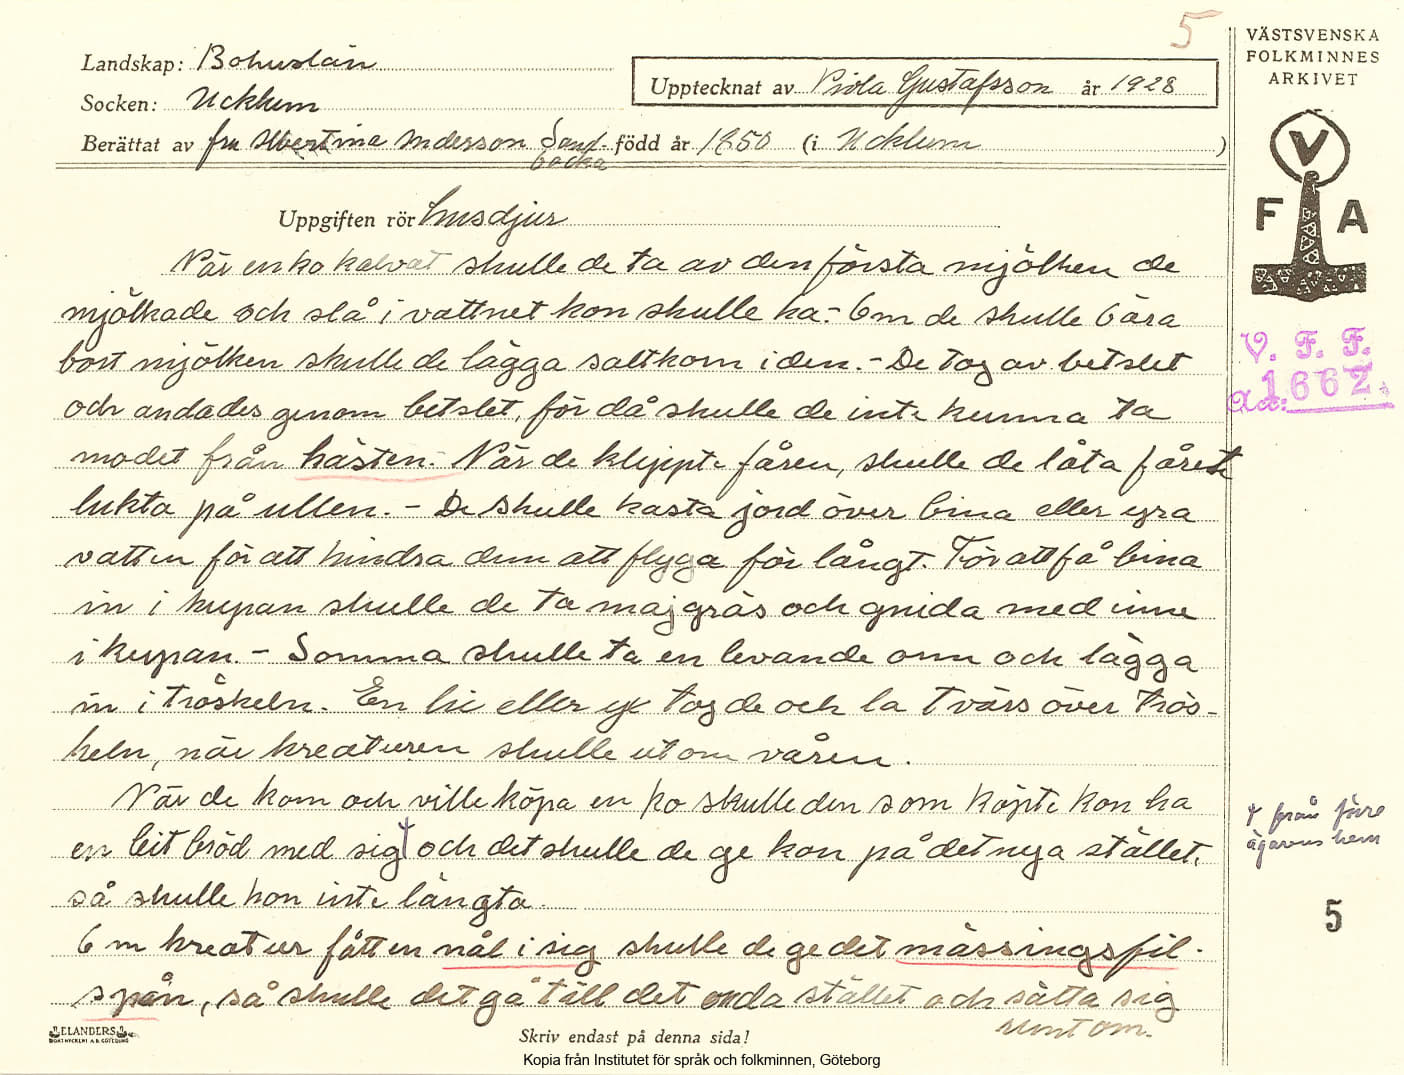 5
VÄSTSVENSKA
FOLKMINNES
ARKIVET
Landskap: Bohuslän
Upptecknat av Viola Gustafsson år 1928
Socken: Ucklum
Berättat av fru Albertina Andersson Sand- född år 1850 (i Ucklum)
backa
V
F A
Uppgiften rör husdjur
När en ko kalvat skulle de ta av den första mjölken de
mjölkade och slå i vattnet kon skulle ha. - Om de skulle bära
bort mjölken skulle de lägga saltkorn i den. - De tog av betslet
och andades genom betslet, för då skulle de inte kunna ta
modet från hästen. - När de klippte fåren, skulle de låta fåret
lukta på ullen. - De skulle kasta jord över bina eller yra
vatten för att hindra dem att flyga för långt. För att få bina
in i kupan skulle de ta majgräs och gnida med inne
i kupan. - Somma skulle ta en levande orm och lägga
in i tröskeln. En lie eller yx tog de och la tvärs över trös-
keln, när kreaturen skulle ut om våren.
När de kom och ville köpa en ko skulle den som köpte kon ha
en bit bröd med sig † och det skulle de ge kon på det nya stället,
så skulle kon inte längta.
Om kreatur fått en nål i sig skulle de ge det mässingsfil-
spån, så skulle det gå till det onda stället och sätta sig
runt om.
V. F. F.
Acc: 1662.
† från förre
ägarens hem
5
ELANDERS
BOKTRYCKERI A.B. GÖTEBORG
Skriv endast på denna sida!
Kopia från Institutet för språk och folkminnen, Göteborg